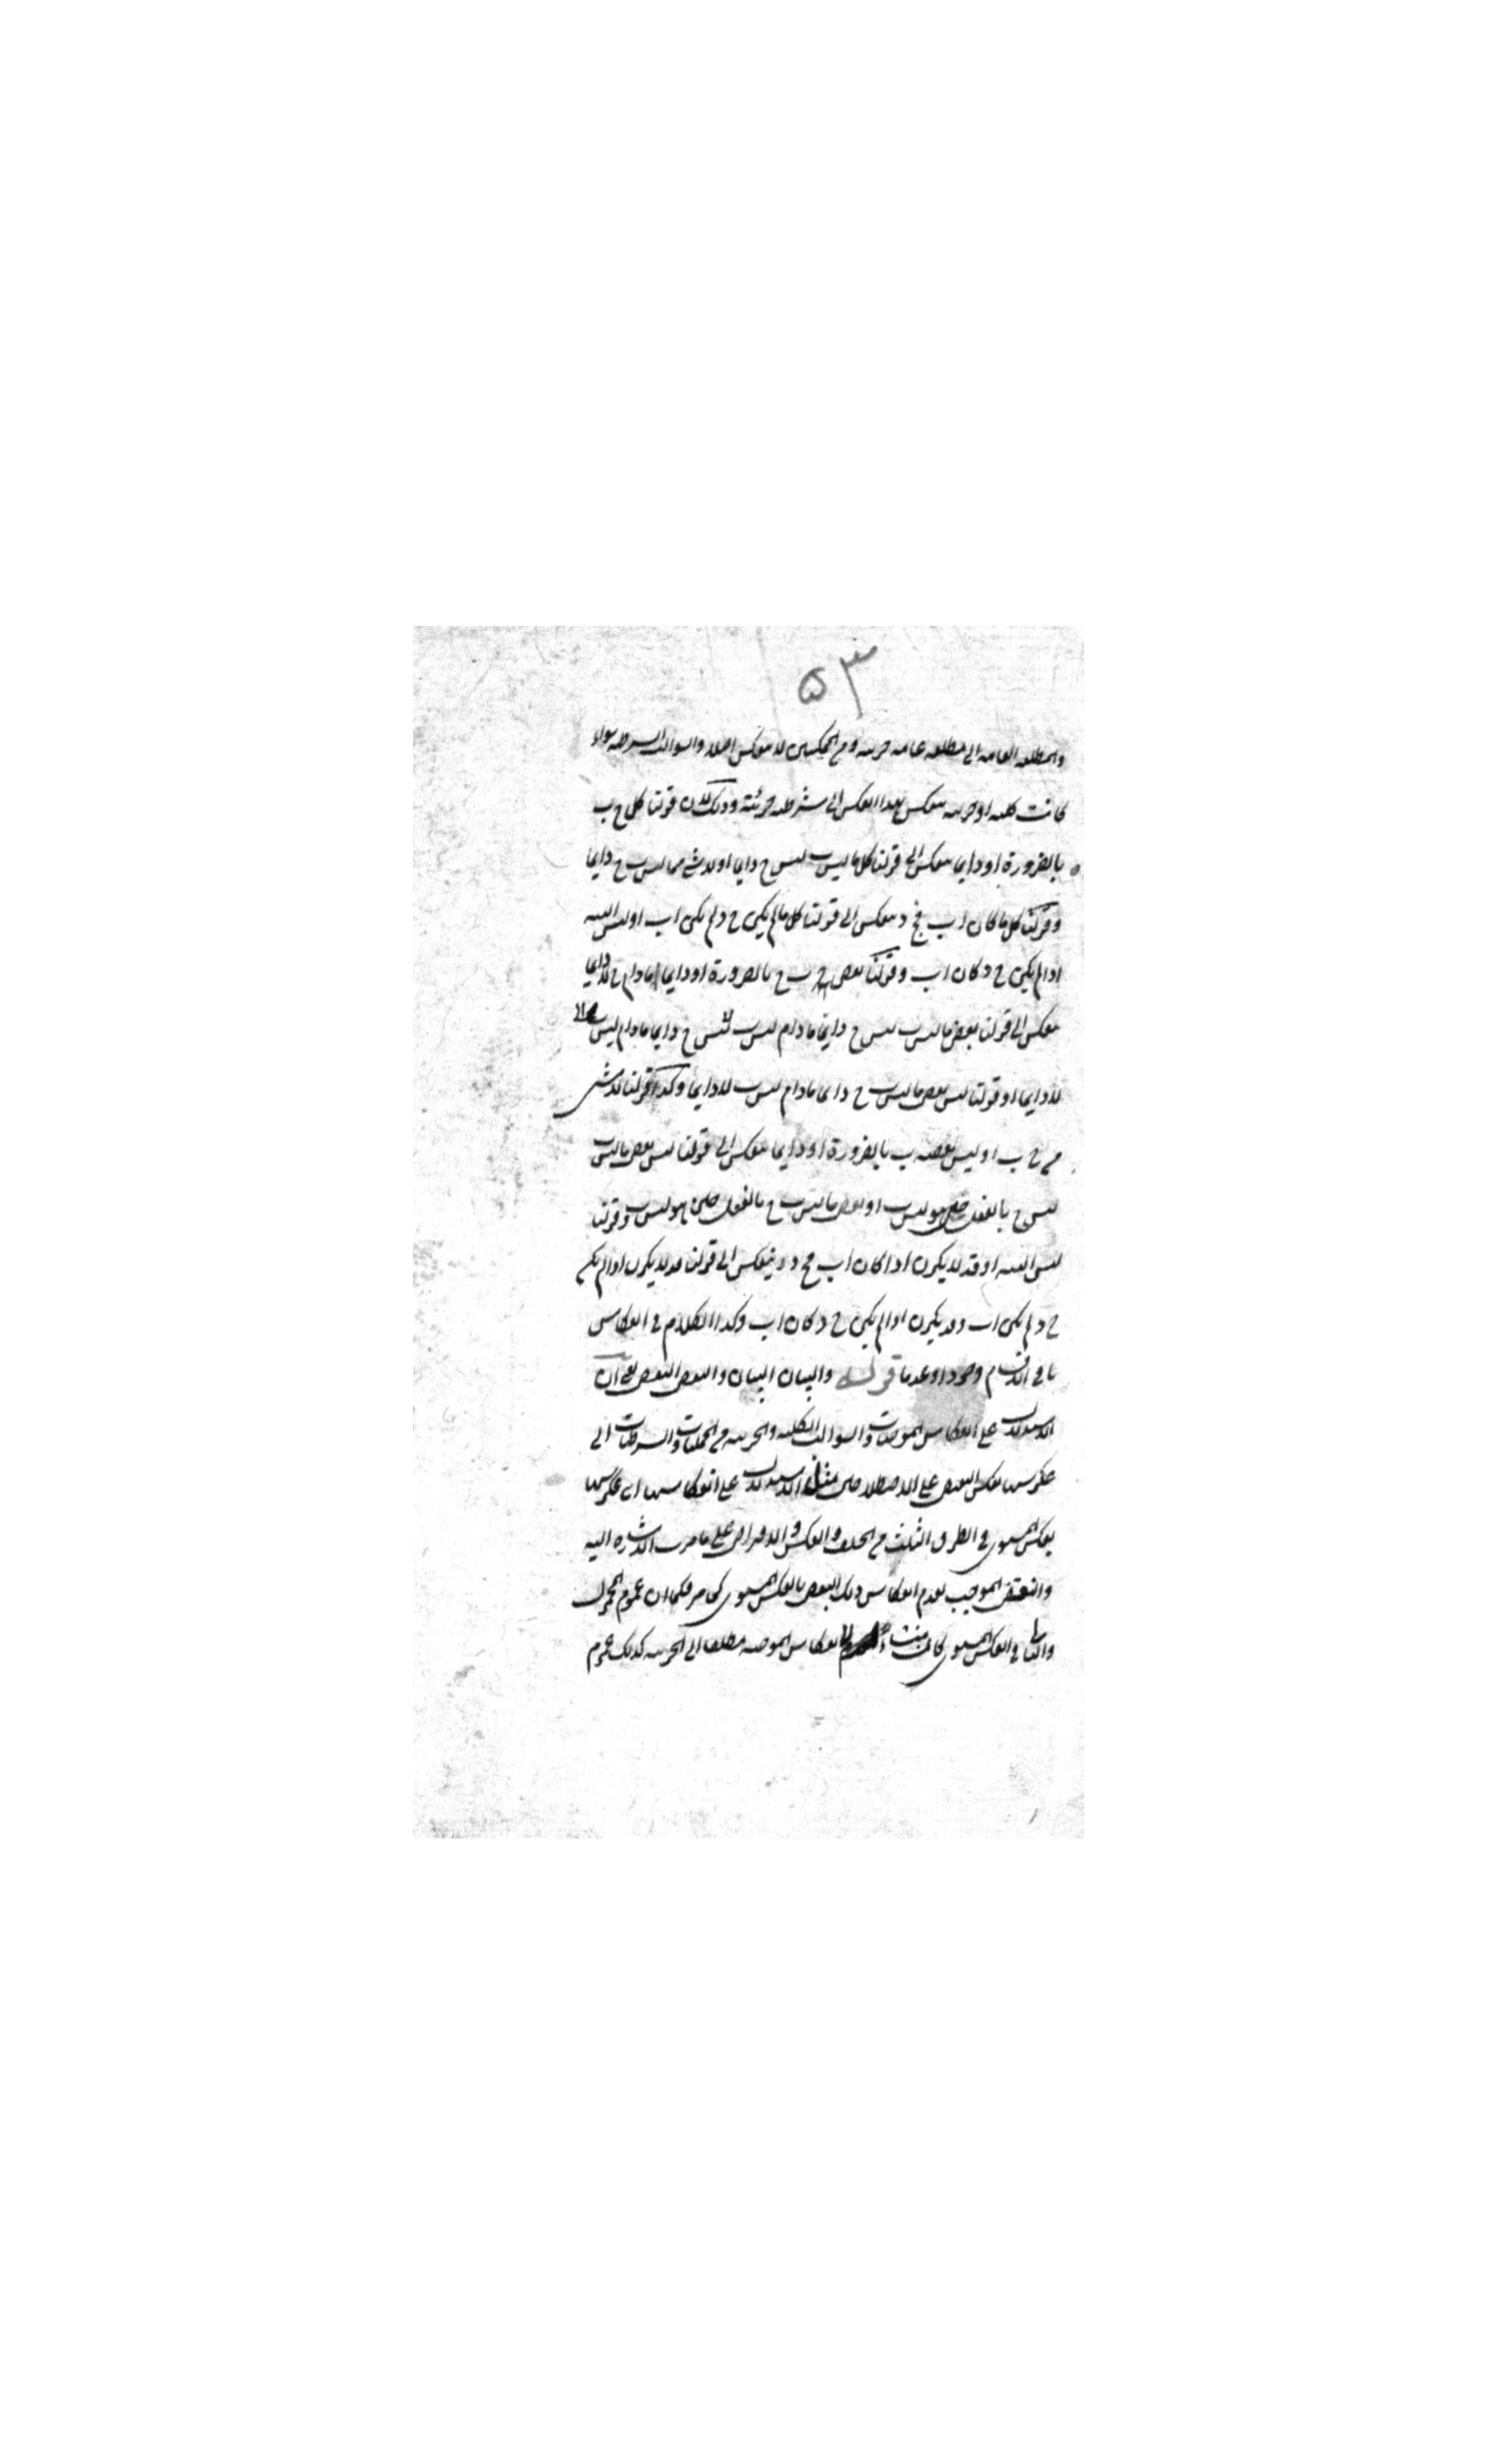 ٥٣
والمطلقة العامة الى مطلقة عامة جزئية ومن الممكنتين لا ينعكس اصلا والسوالب الشرطية سواء
كانت كلية او جزئية ينعكس بهذا العكس الى شرطية جزئية وذلك لان قولنا كل ج ب
بالضرورة او دايما ينعكس الى قولنا كل ما ليس ب ليس ج دايما او لا شئ مما ليس ب ج دايما
وقولنا كل ما كان ا ب فج د ينعكس الى قولنا كل ما لم يكن ج د لم يكن ا ب او ليس البتة
اذا لم يكن ج د كان ا ب وقولنا بعض ج ب بالضرورة او دايما مادام ج لا دايما
ينعكس الى قولنا بعض ما ليس ب ليس ج دايما مادام ليس ب ليس ج دايما مادام ليس ب
لا دايما او قولنا ليس بعض ما ليس ب ج دايما مادام ليس ب لا دايما وكذا قولنا لا شئ
من ج ب او ليس بعضه ب بالضرورة او دايما ينعكس الى قولنا ليس بعض ما ليس ب
ليس ج بالفعل حين هو ليس ب او بعض ما ليس ب ج بالفعل حين هو ليس ب وقولنا
ليس البتة او قد لا يكون اذا كان ا ب فج د ينعكس الى قولنا قد لا يكون اذا لم يكن
ج د لم يكن ا ب وقد يكون اذا لم يكن ج د كان ا ب وكذا الكلام في انعكاس
باقي الاقسام وجودا وعدما قوله والبيان البيان والنقض النقض يعني ان
الاستدلال على انعكاس الموجبات والسوالب الكلية والجزئية من الحمليات والشرطيات الى
عكوسها بعكس النقيض على الاصطلاحين مثل الاستدلال على انعكاسها الى عكوسها
بعكس المستوى في الطرق الثلث من الخلف والعكس والافتراض على ما مرت الاشارة اليه
والنقض الموجب لعدم انعكاس ذلك البعض بالعكس المستوى كما مر فكما ان عموم المحمول
والتالي في العكس المستوى كان منشأ انعكاس الموجبة مطلقا الى الجزئية كذلك عموم